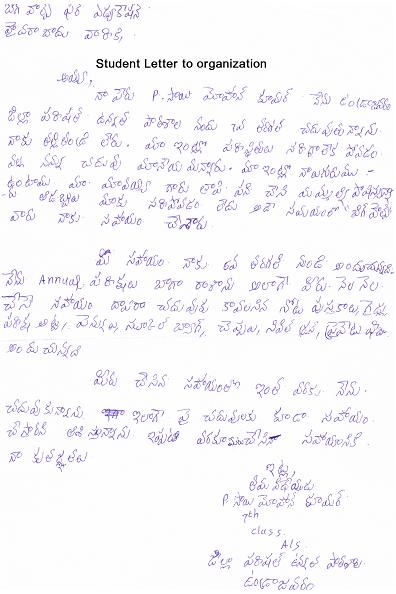 బిగ్ హెల్ప్ ఫర్ ఎడ్యుకేషన్
హైదరాబాదు వారికి,
Student Letter to organization
అయ్యా,
నా పేరు P. సాయి మోహన్ కుమార్. నేను ఉండ్రాజవరం
జిల్లా పరిషత్ ఉన్నత పాఠశాల నందు చదువుతున్నాను
నాకు తల్లితండ్రి లేరు. మా ఇంట్లో పరిస్థితులు సరిగ్గాలేక పోవడం
నన్ను చదువు మానేయమన్నారు. మా ఇంట్లో నాలుగురుము -
ఉంటాము మా మావయ్య గారు తాపి పని చేసి మమ్మల్ని
డబ్బులు మాకు సరిపోవడం లేదు అదే సమయంలో బిగ్ హెల్ప్
వారు నాకు సహాయం చేశారు
మీ సహాయం నాకు తరగతి నుండి అందుచున్నది
నేను Annual పరిక్షలు బాగా రాశాను అలాగే మీరు నెల నెల
చేసే సహాయం ద్వారా చదువుకు కావలసిన నోటు పుస్తకాలు,
పరిక్ష అట్ట, పెన్నులు, స్కూల్ బ్యాగ్, చెప్పులు, సివిల్ డ్రస్, ప్రైవేటు ఫీజు
అందుచున్నది
మీరు చేసిన సహాయంతో ఇంత వరకు నేను
చదువుకున్నాను ఇలాగే పై చదువులకు కూడా సహాయం
చేస్తారని ఆశిస్తున్నాను ఇప్పటి వరకు చేసిన సహాయానికి
నా కృతజ్ఞతలు
ఇట్లు
తమ విధేయుడు
P సాయి మోహన్ కుమార్
7th
class.
A/S
జిల్లా పరిషత్ ఉన్నత పాఠశాల
ఉండ్రాజవరం